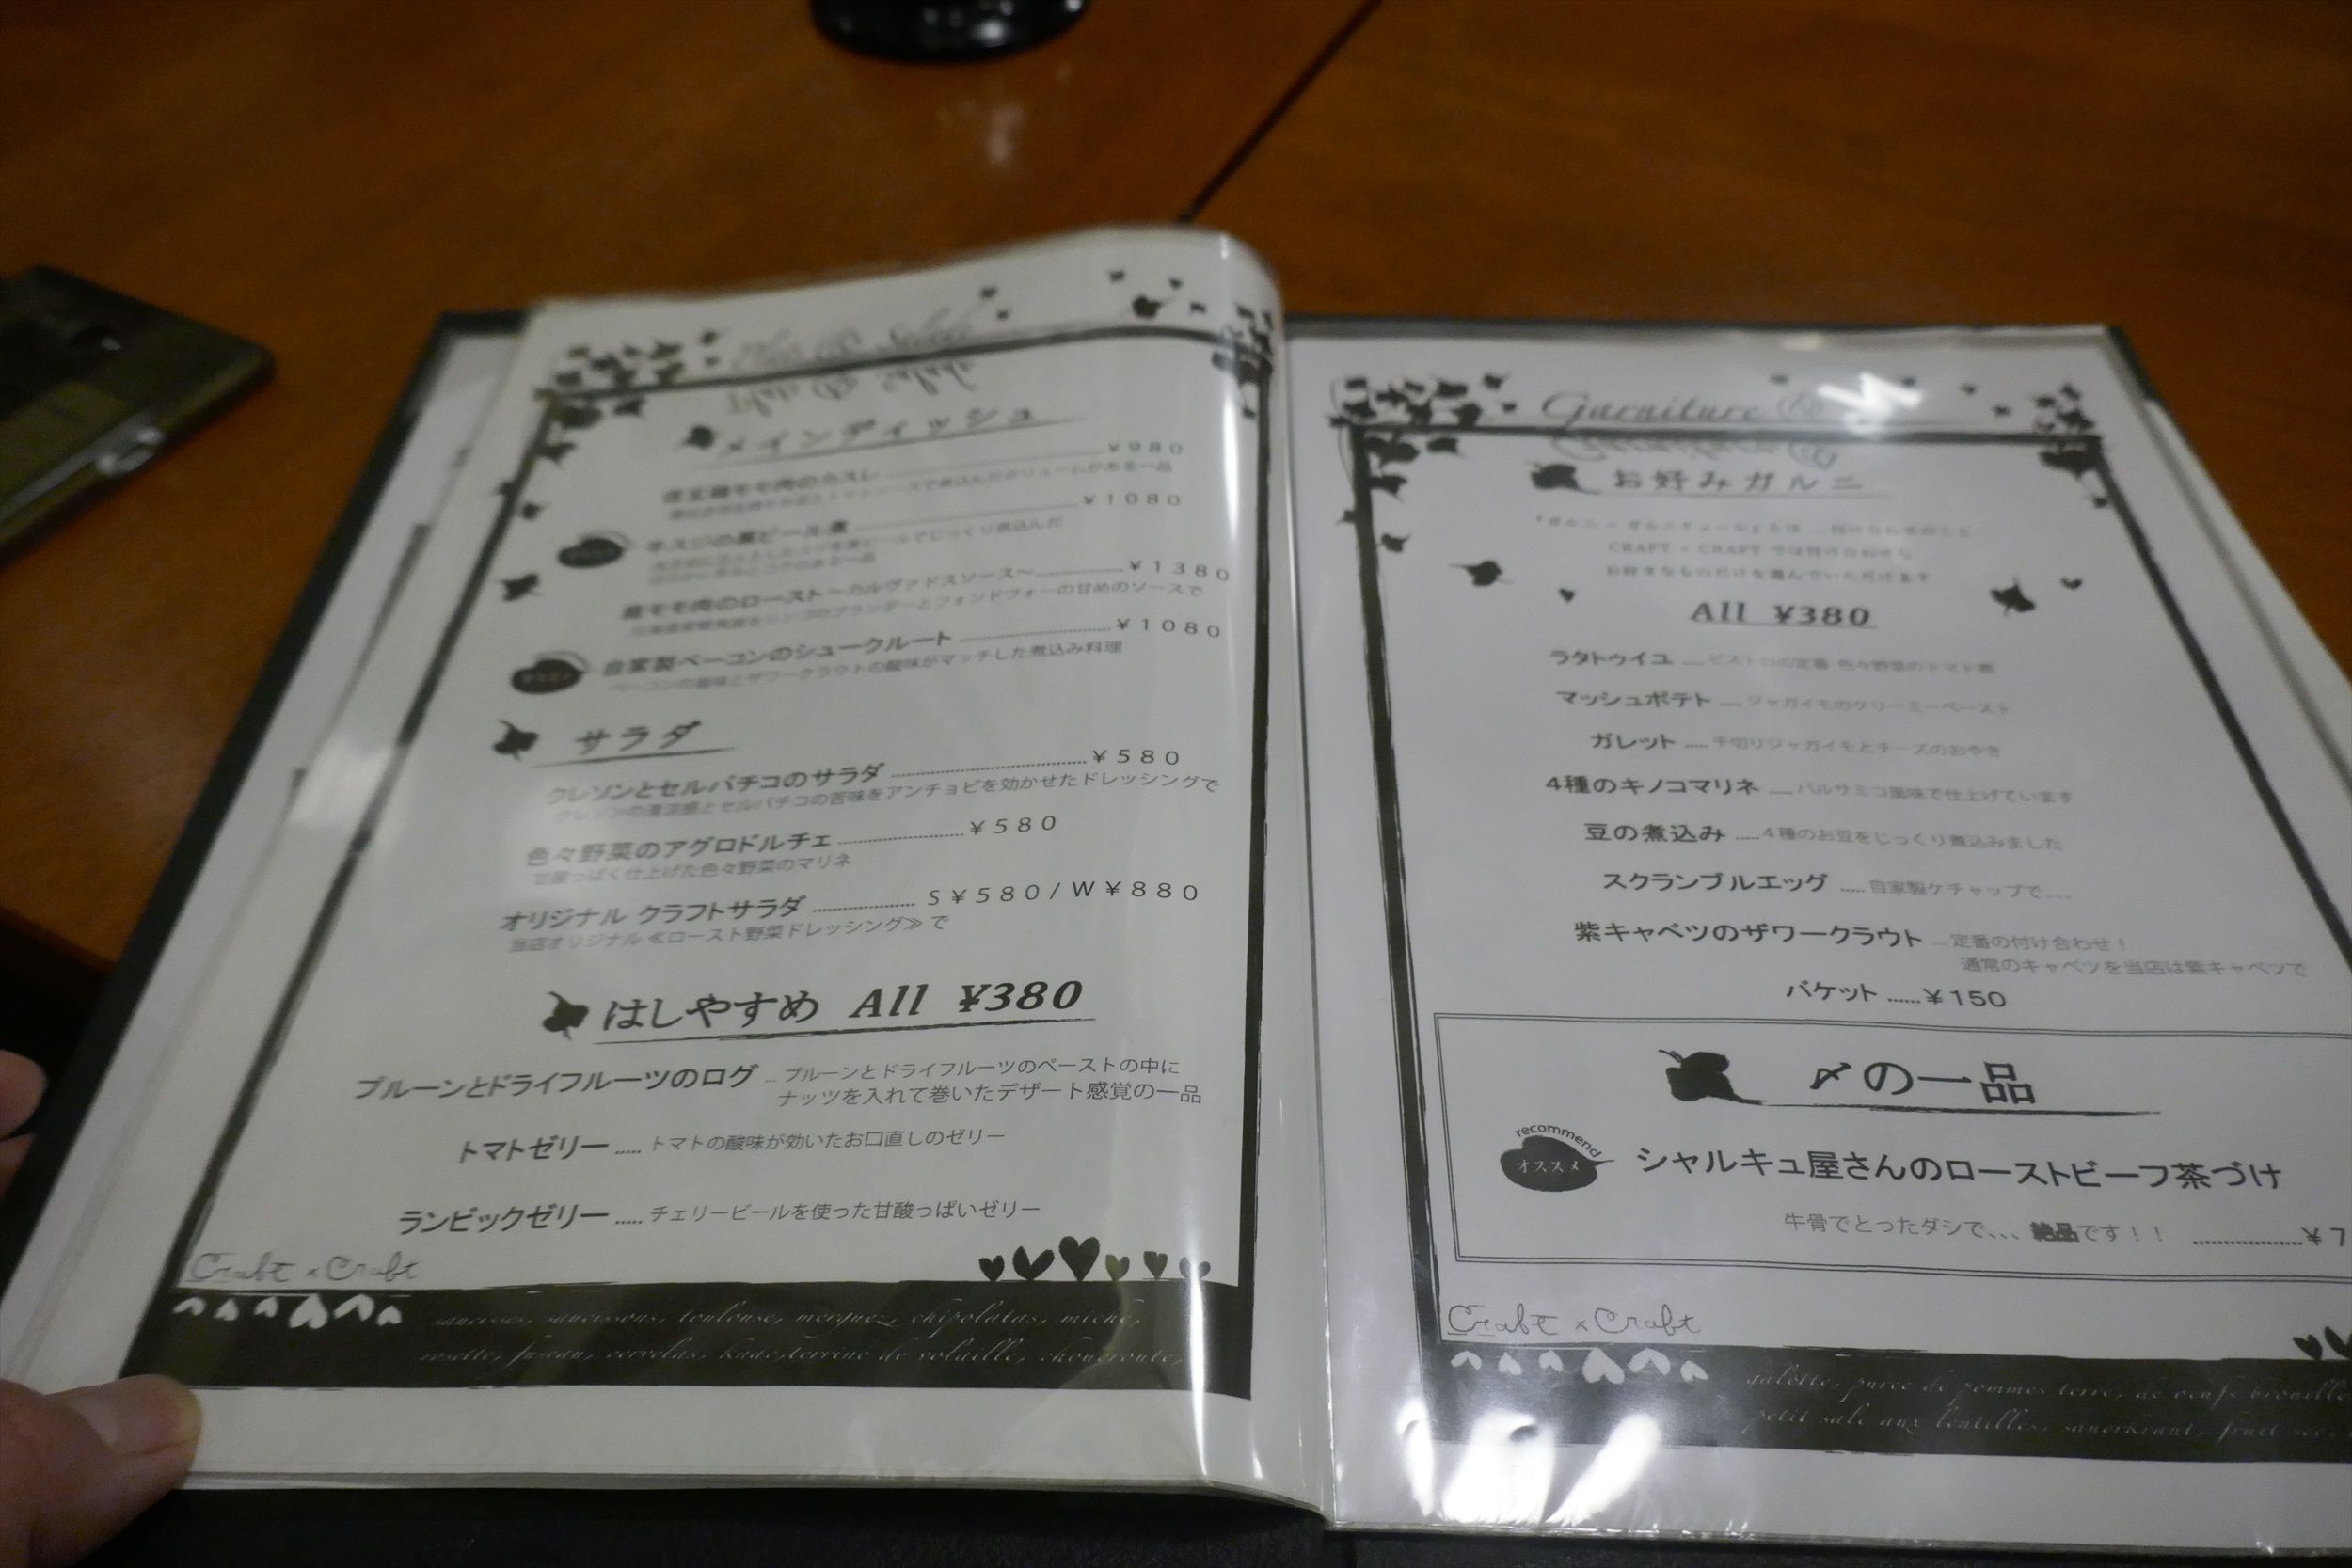 メインディッシュ
モモ肉のカスレ ¥980
¥1080
モモ肉のロースト～カルヴァドスソース～ ¥1380
自家製ベーコンのシュークルート ¥1080
ベーコンの塩味とザワークラウトの酸味がマッチした煮込み料理
サラダ
クレソンとセルバチコのサラダ ¥580
クレソンの清涼感とセルバチコの苦味をアンチョビを効かせたドレッシングで
色々野菜のアグロドルチェ ¥580
甘酸っぱく仕上げた色々野菜のマリネ
オリジナル クラフトサラダ S¥580/W¥880
当店オリジナル≪ロースト野菜ドレッシング≫で
はしやすめ All ¥380
プルーンとドライフルーツのログ … プルーンとドライフルーツのペーストの中に
ナッツを入れて巻いたデザート感覚の一品
トマトゼリー …… トマトの酸味が効いたお口直しのゼリー
ランビックゼリー …… チェリービールを使った甘酸っぱいゼリー
Craft x Craft
saucisses, saucissons, toulouse, merguez, chipolatas, miche,
rosette, fuseau, cervelas, knac, terrine de volaille, choucroute,
Garniture
お好みガルニ
CRAFT × CRAFT では付け合わせも
お好きなものだけを選んでいただけます
All ¥380
ラタトゥイユ …… ビストロの定番 色々野菜のトマト煮
マッシュポテト …… ジャガイモのクリーミーペースト
ガレット …… 千切りジャガイモとチーズのおやき
4種のキノコマリネ …… バルサミコ風味で仕上げています
豆の煮込み …… 4種のお豆をじっくり煮込みました
スクランブルエッグ …… 自家製ケチャップで、、、
紫キャベツのザワークラウト … 定番の付け合わせ！
通常のキャベツを当店は紫キャベツで
バケット ……¥150
〆の一品
recommend
オススメ
シャルキュ屋さんのローストビーフ茶づけ
牛骨でとったダシで、、、絶品です！！ ¥7
Craft x Craft
galette, puree de pommes terre, de oeufs brouille
petit sale aux lentilles, sauerkraut, fruit sec